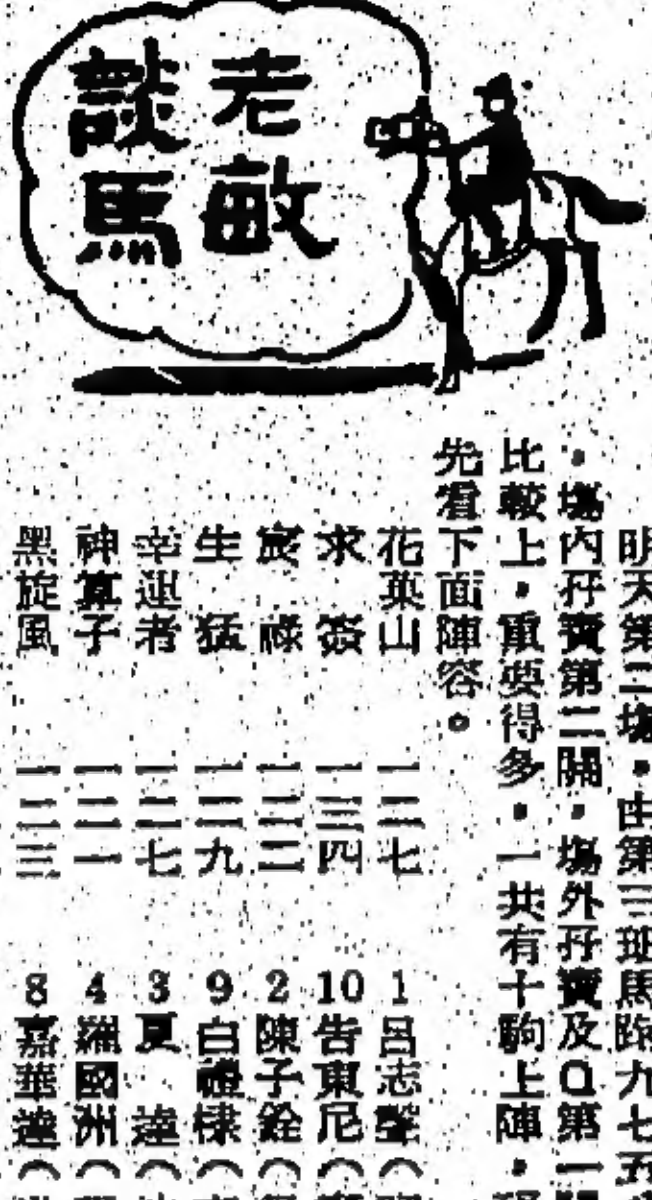 老敏
談馬
明天第二場，由第三班馬跑九七五
，場內孖寶第二關，場外孖寶及Q第一
比較上，重要得多，一共有十駒上陣，
先看下面陣容。
花菓山 一二七 1呂志聖（
求簽 一三四 10告東尼（
宸祿 一三二 2陳子銓（
生猛 一二九 9白禮棣（
幸運者 一二七 3夏達（
神算子 一二一 4羅國洲（
黑旋風 一二三 8嘉華達（